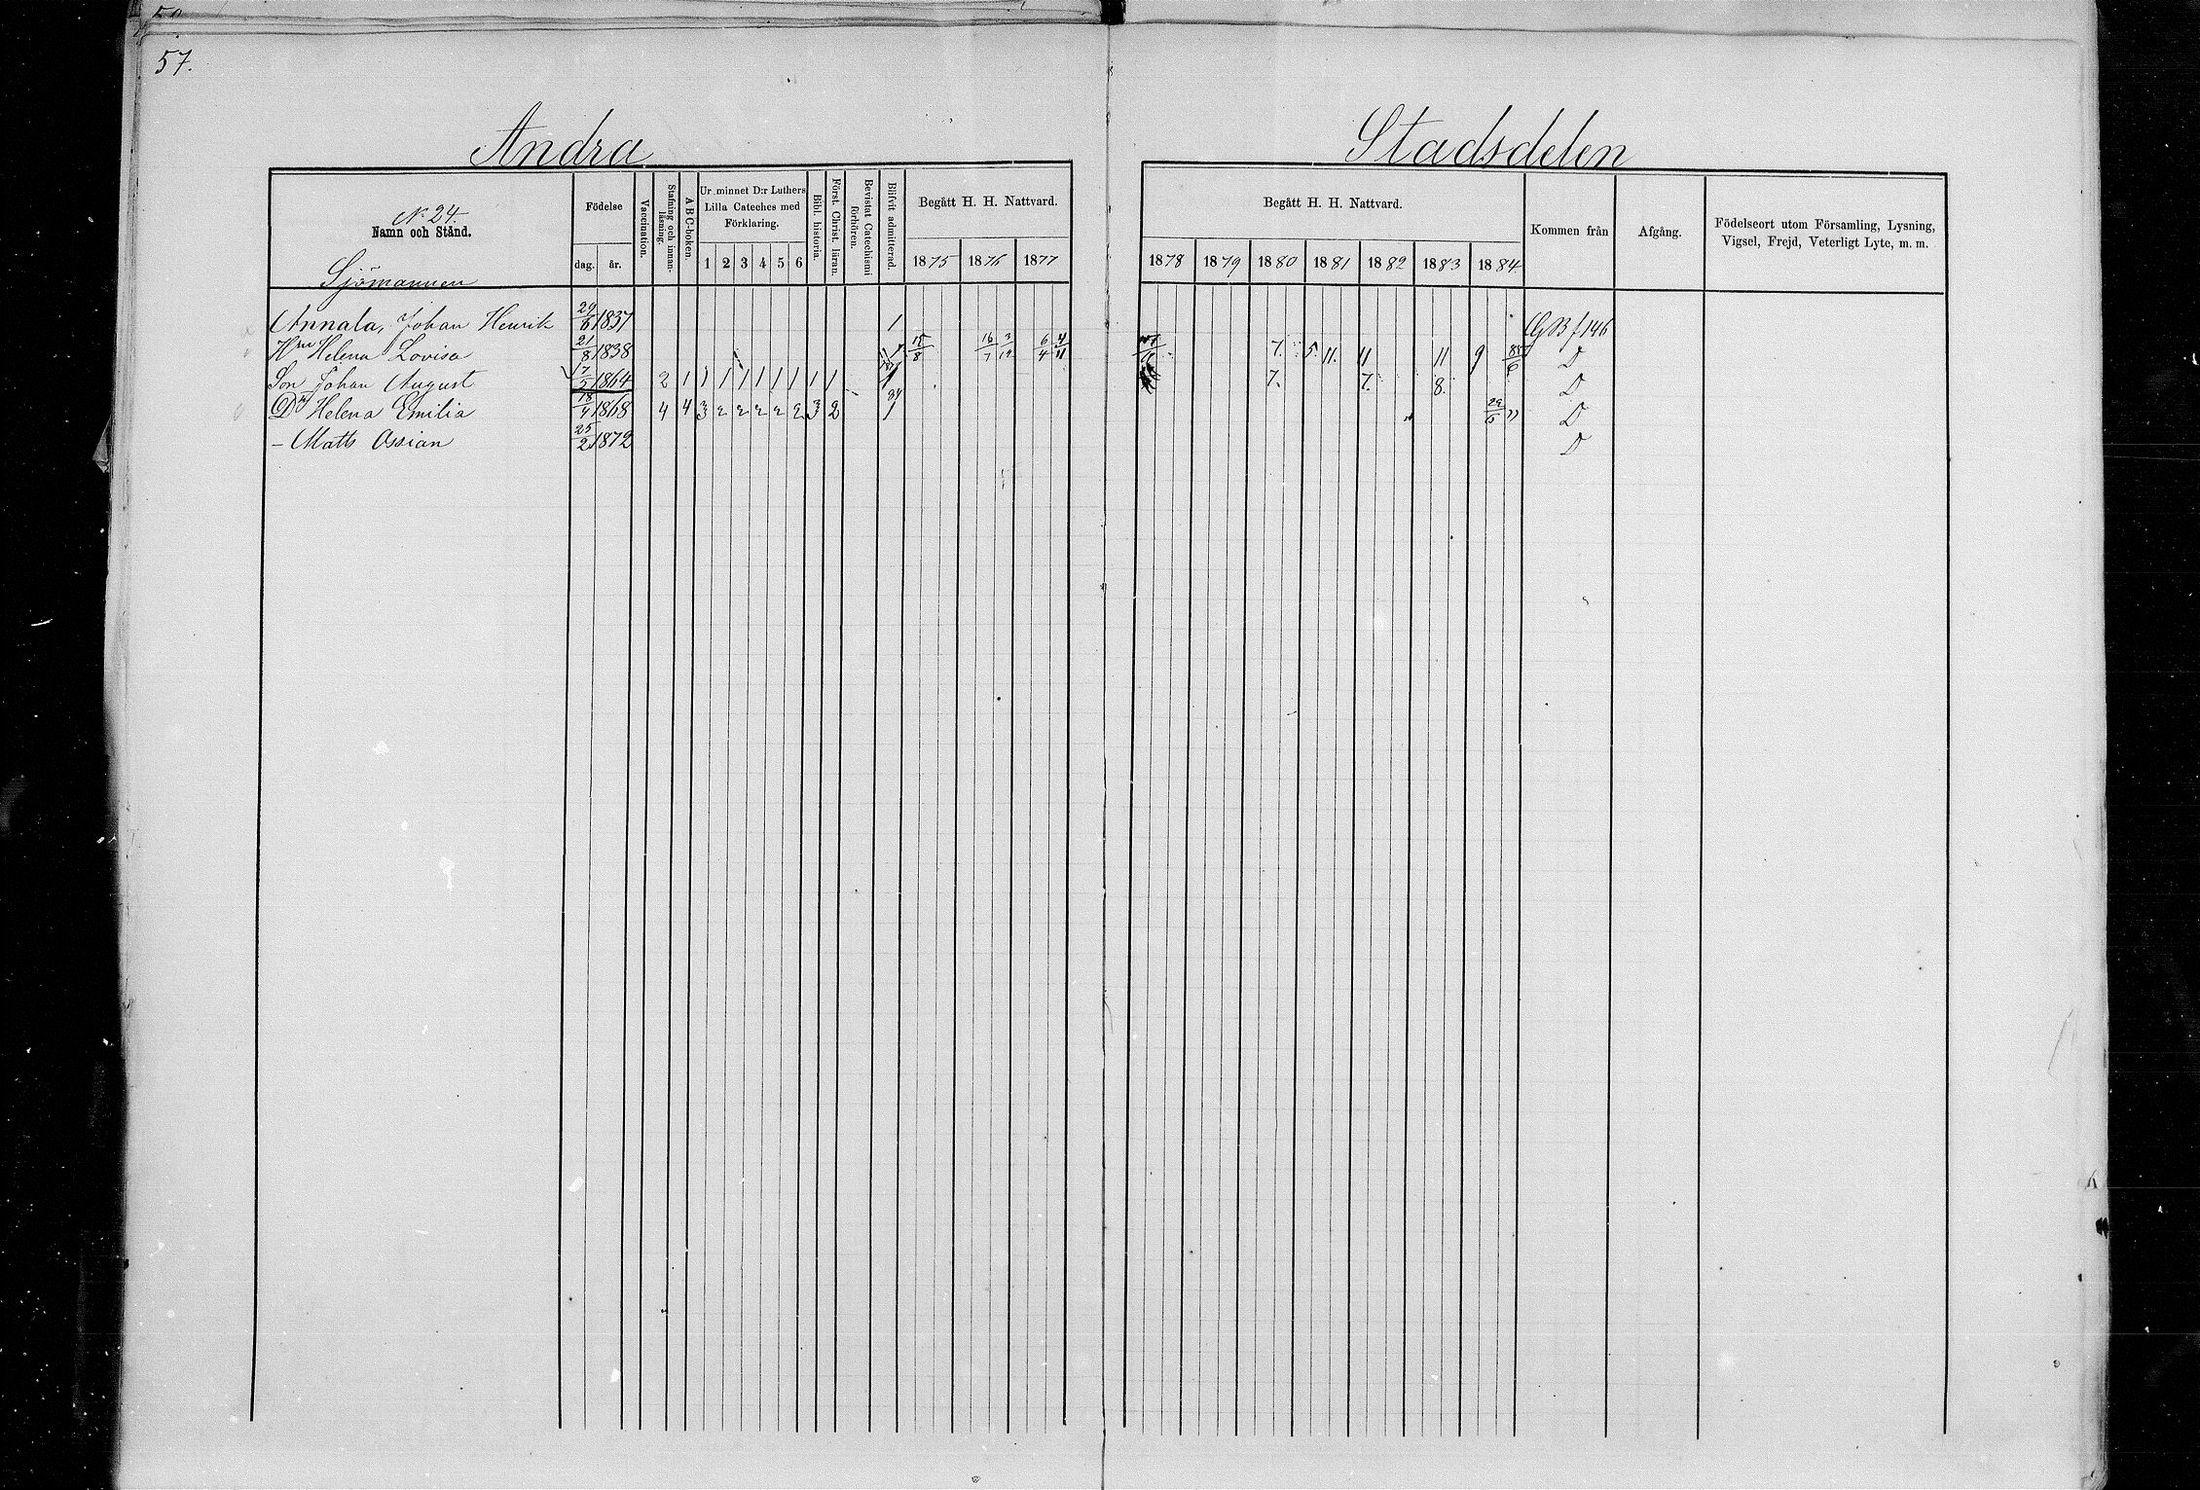 57.
Andra Stadsdelen
N. 24.
Namn och Stånd.
Sjömannen
Födelse
dag. år.
Vaccination.
Stafning och innanläsning.
A B C-boken.
Ur minnet D:r Luthers
Lilla Cateches med
Förklaring.
1 2 3 4 5 6
Bibl. historia.
Först. Christ. läran.
Bevistat Catechismi
förhören.
Blifvit admitterad.
Begått H. H. Nattvard.
1875 1876 1877
Begått H. H. Nattvard.
1878 1879 1880 1881 1882 1883 1884
Kommen från
Afgång.
Födelseort utom Församling, Lysning,
Vigsel, Frejd, Veterligt Lyte, m. m.
Annala, Johan Henrik 1837 1 G B f 146
Hru Helena Lovisa 21/8 1838 15/8 16/7 3/12 6/4 4/11 7. 5 11. 11 11 9 D
Son Johan August 17/5 1864 2 1 1 1 1 1 1 1 1 1 7. 7. 8. D
Dr Helena Emilia 18/4 1868 4 4 3 2 2 2 2 2 3 2 D
- Matts Ossian 25/2 1872 D